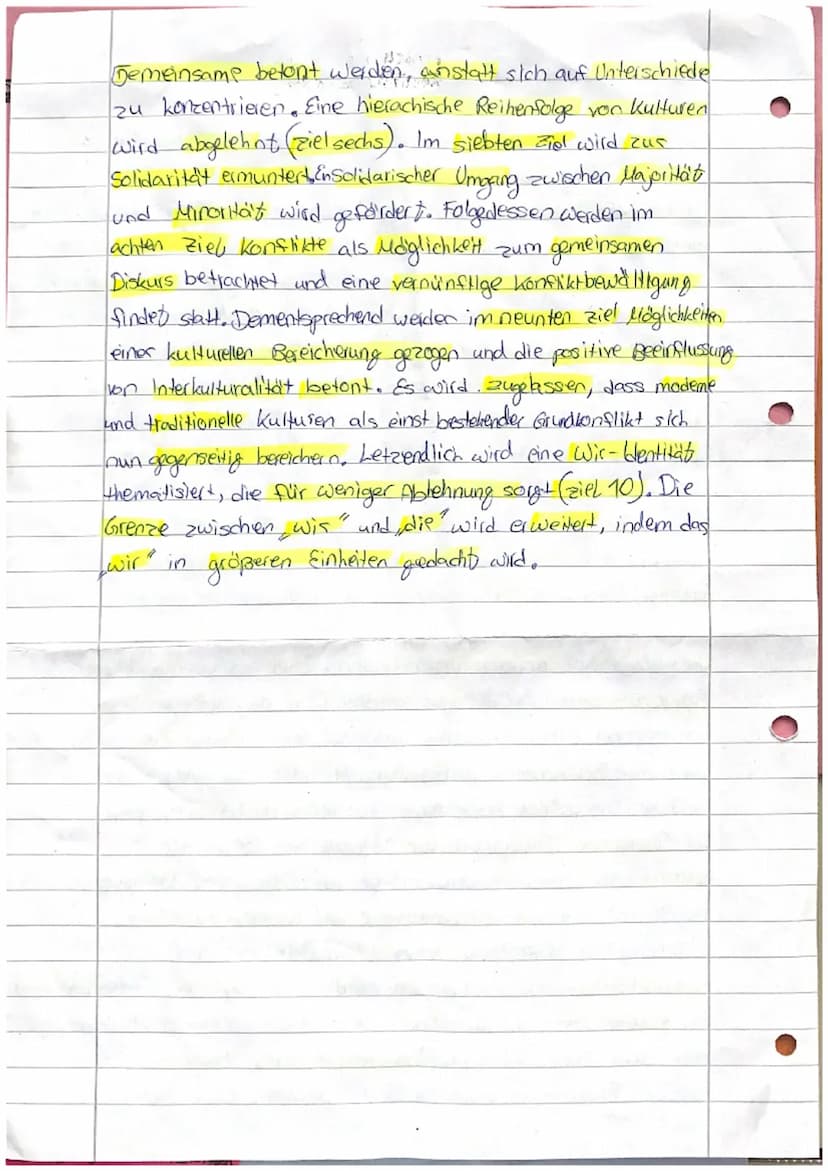 Gemeinsame betont werden, anstatt sich auf Unterschiede
zu konzentrieren. Eine hierachische Reihenfolge von Kulturen
wird abgelehnt (ziel sechs). Im siebten Ziel wird zur
Solidarität ermuntert. Ein solidarischer Umgang zwischen Majorität
und Minorität wird gefördert. Folgedessen werden im
achten Ziel Konflikte als Möglichkeit zum gemeinsamen
Diskurs betrachtet und eine vernünftige Konfliktbewältigung
findet statt. Dementsprechend werden im neunten Ziel Möglichkeiten
einer kulturellen Bereicherung gezogen und die positive Beeinflussung
von Interkulturalität betont. Es wird zugelassen, dass moderne
und traditionelle Kulturen als einst bestehender Grundkonflikt sich
nun gegenseitig bereichern. Letzendlich wird eine Wir-Identität
thematisiert, die für weniger Ablehnung sorgt (ziel 10). Die
Grenze zwischen „wir“ und „die“ wird erweitert, indem das
„wir“ in größeren Einheiten gedacht wird.